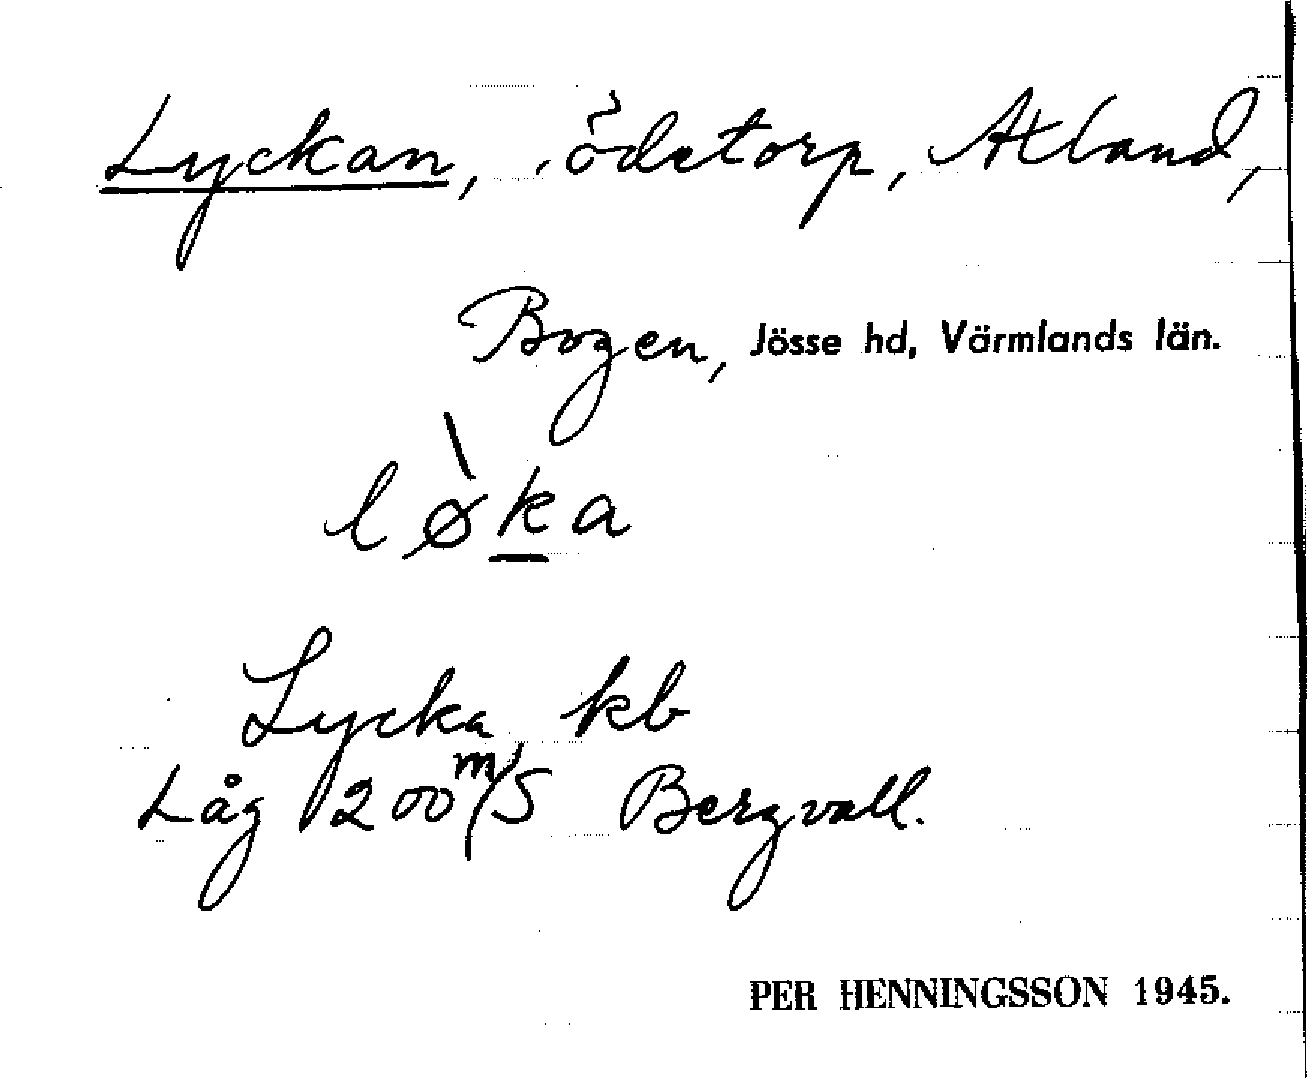 Lyckan, ödetorp, Åtland,
Bogen, Jösse hd, Värmlands län.
lø̀ka
Lycka kb
Låg 200 m S Bergvall.
PER HENNINGSSON 1945.